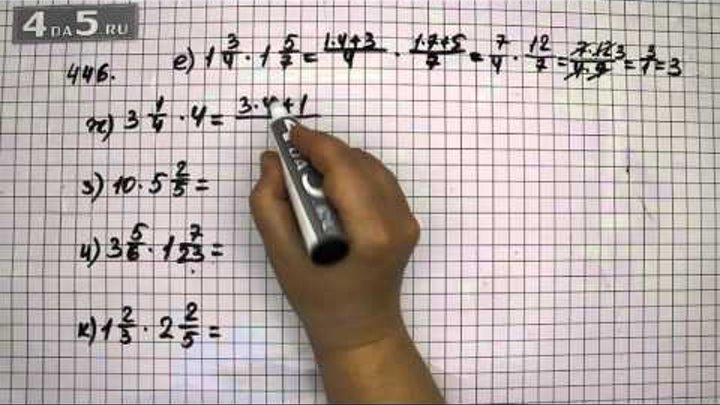 4 DA 5.RU
446. е) 1 3/4 · 1 5/7 = 1·4+3/4 · 1·7+5/7 = 7/4 · 12/7 = 7·12 3/4·7 = 3/1 = 3
ж) 3 1/4 · 4 = 3·4+1
з) 10 · 5 2/5 =
и) 3 5/6 · 1 7/23 =
к) 1 2/3 · 2 2/5 =